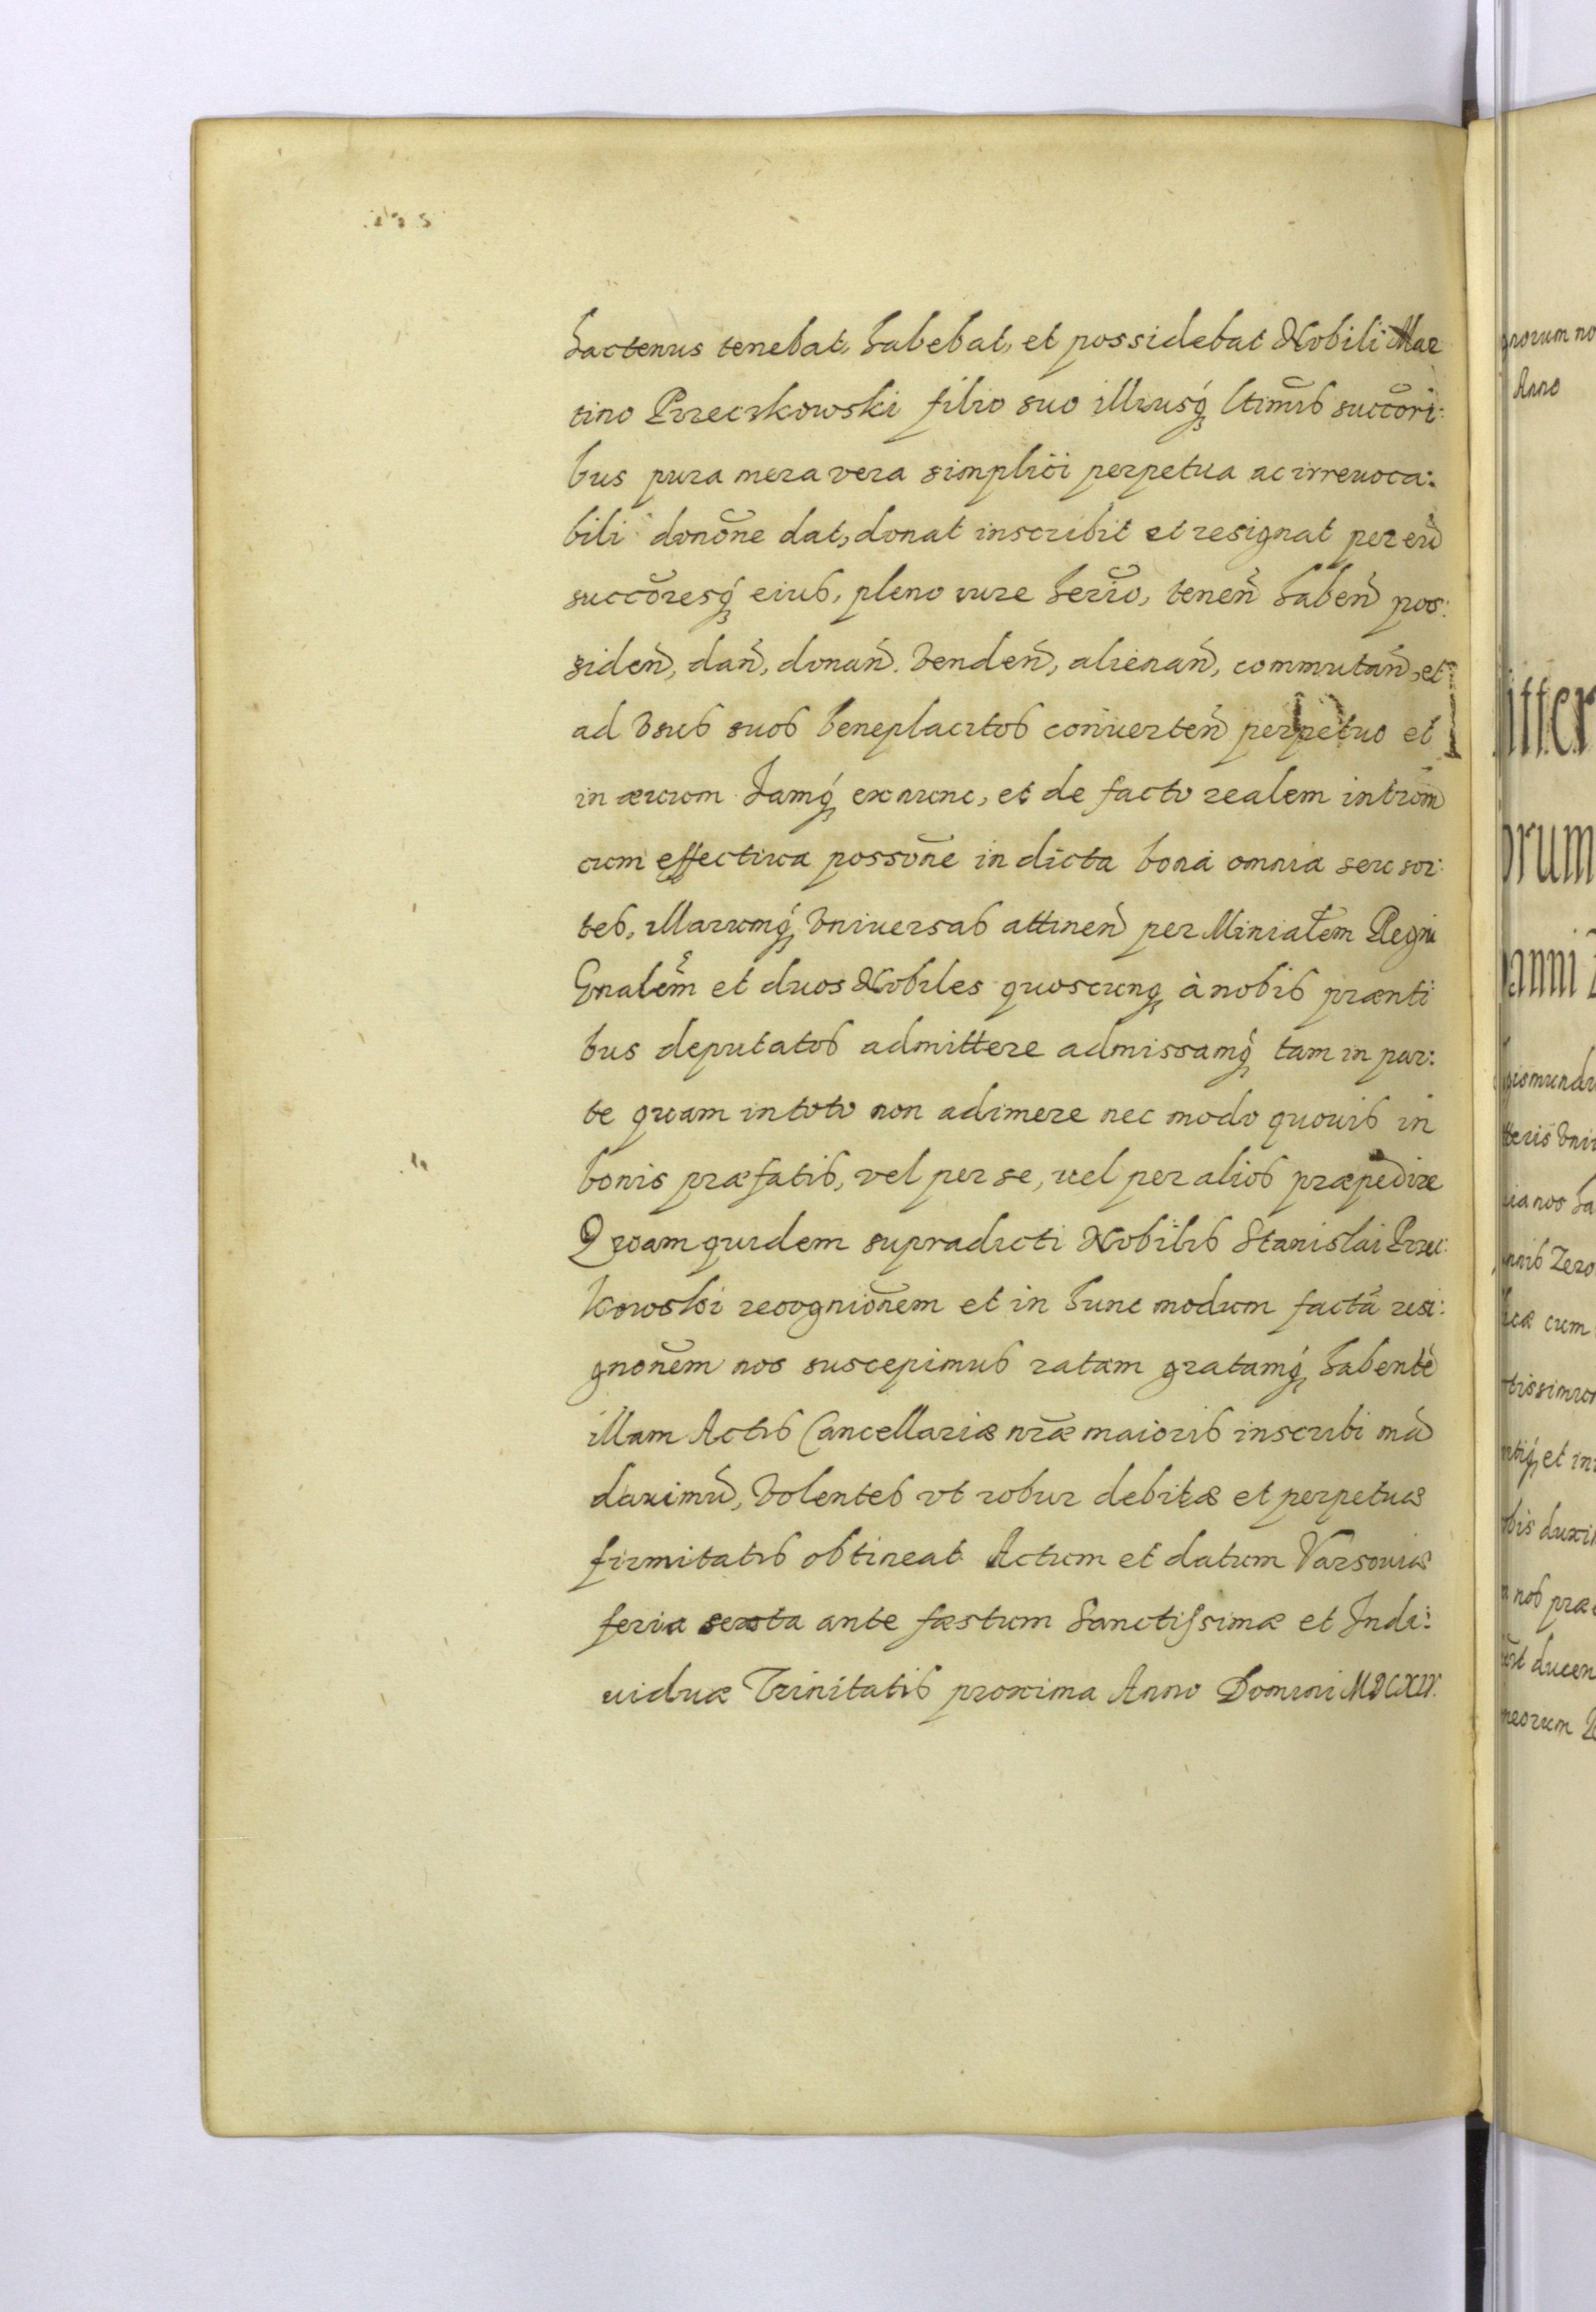 hactenus tenebat, habebat, et possidebat Nobili Mar
tino Przeczkowski filio suo illiusq́ꝫ ltimis̄ succori:
bus pura mera vera simplici perpetua ac irreuoca:
bili donōne dat, donat inscribit et resignat per eū
succōresq́ꝫ eius, pleno iure herīo, tenen̄ haben̄ pos:
siden̄, dan̄, donan̄. Venden̄, alienan̄, commutan̄, et
ad Vsus suos beneplacitos conuerten̄ perpetuo et
in æuum Jamq́ꝫ ex nunc, et de facto realem introm̄
cum effectiua possōne in dicta bona omnia seu sor:
tes, illarumq́ꝫ Vniuersas attinen̄ per Minialem Regni
Gnalem̄ et duos Nobiles quoscunqꝫ à nobis prænti
bus deputatos admittere admissamq́ꝫ tam in par:
te quam in toto non adimere nec modo quouis in
bonis præfatis, vel per se, uel per alios præpedire
Quam quidem supradicti Nobilis Stanislai Przec:
kowski recognionēm et in hunc modum factā resi:
gnonēm nos suscepimus ratam gratamq́ꝫ habentē
illam Actis Cancellariæ nr̄æ maioris inscribi mā
dauimū, Volentes vt robur debitæ et perpetuæ
firmitatis obtineat Actum et datum Varsouiæ
feria sexta ante fæstum Sanctissimæ et Indi:
uiduæ Trinitatis proxima Anno Domini
gnorum no
Anno
litter
orum
anni
gismundu
tteris Vni
ia nos ha
annis Zero
icæ cum
tissimor
ntiq́ꝫ et in
obis duxi
nos præ
ducen
neorum